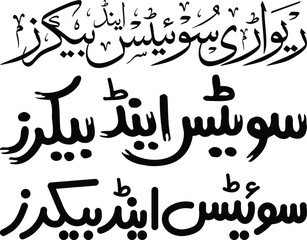 ریواڑی سوئیٹس اینڈ بیکرز
سویٹس اینڈ بیکرز
سوئیٹس اینڈ بیکرز